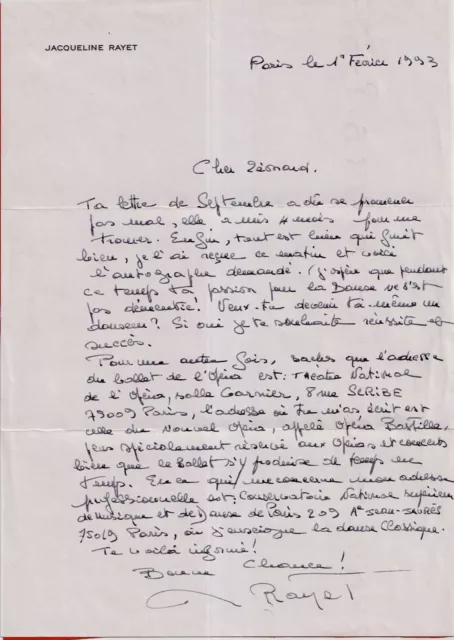 JACQUELINE RAYET
Paris le 1er Février 1993
Cher Léonard.
Ta lettre de Septembre a dû se promener
pas mal, elle a mis 4 mois pour me
trouver. Enfin, tout est bien qui finit
bien, je l'ai reçue ce matin et voici
l'autographe demandé. J'espère que pendant
ce temps ta passion pour la Danse ne s'est
pas démentie! Veux-tu devenir toi même un
danseur? Si oui je te souhaite réussite et
succès.
Pour une autre fois, saches que l'adresse
du ballet de l'Opéra est: Théâtre National
de l'Opéra, salle Garnier, 8 rue SCRIBE
75009 Paris, l'adresse où tu m'as écrit est
celle du Nouvel Opéra, appelé Opéra Bastille,
plus spécialement réservé aux Opéras et concerts
bien que le Ballet s'y produise de temps en
temps. En ce qui me concerne mon adresse
professionnelle est: Conservatoire National Supérieur
de Musique et de Danse de Paris 209 Av Jean-JAURÈS
75019 Paris, où j'enseigne la danse Classique.
Te voilà informé!
Bonne Chance!
Rayet